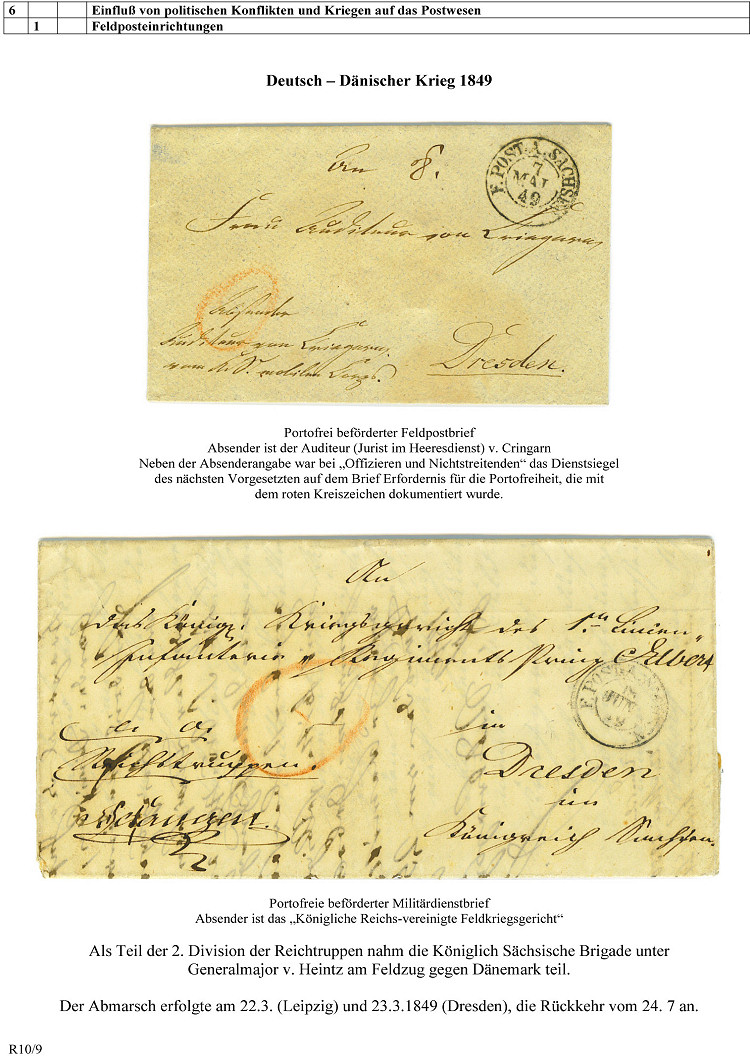 6 Einfluß von politischen Konflikten und Kriegen auf das Postwesen
1 Feldposteinrichtungen
Deutsch – Dänischer Krieg 1849
An
F. POST. A. SACHSEN
7
MAI
49
Frau Auditeur von
Absender
Auditeur von
vom K. S. mobilen
Dresden.
Portofrei beförderter Feldpostbrief
Absender ist der Auditeur (Jurist im Heeresdienst) v. Cringarn
Neben der Absenderangabe war bei „Offizieren und Nichtstreitenden“ das Dienstsiegel
des nächsten Vorgesetzten auf dem Brief Erfordernis für die Portofreiheit, die mit
dem roten Kreiszeichen dokumentiert wurde.
An
das Königl. Kriegsgericht des 1ten Linien
Infanterie Regiments Prinz Albert
F. POST. A.
JUN
49
in
Reichstruppen.
Dresden
im
Königreich Sachsen.
Portofreie beförderter Militärdienstbrief
Absender ist das „Königliche Reichs-vereinigte Feldkriegsgericht“
Als Teil der 2. Division der Reichtruppen nahm die Königlich Sächsische Brigade unter
Generalmajor v. Heintz am Feldzug gegen Dänemark teil.
Der Abmarsch erfolgte am 22.3. (Leipzig) und 23.3.1849 (Dresden), die Rückkehr vom 24. 7 an.
R10/9